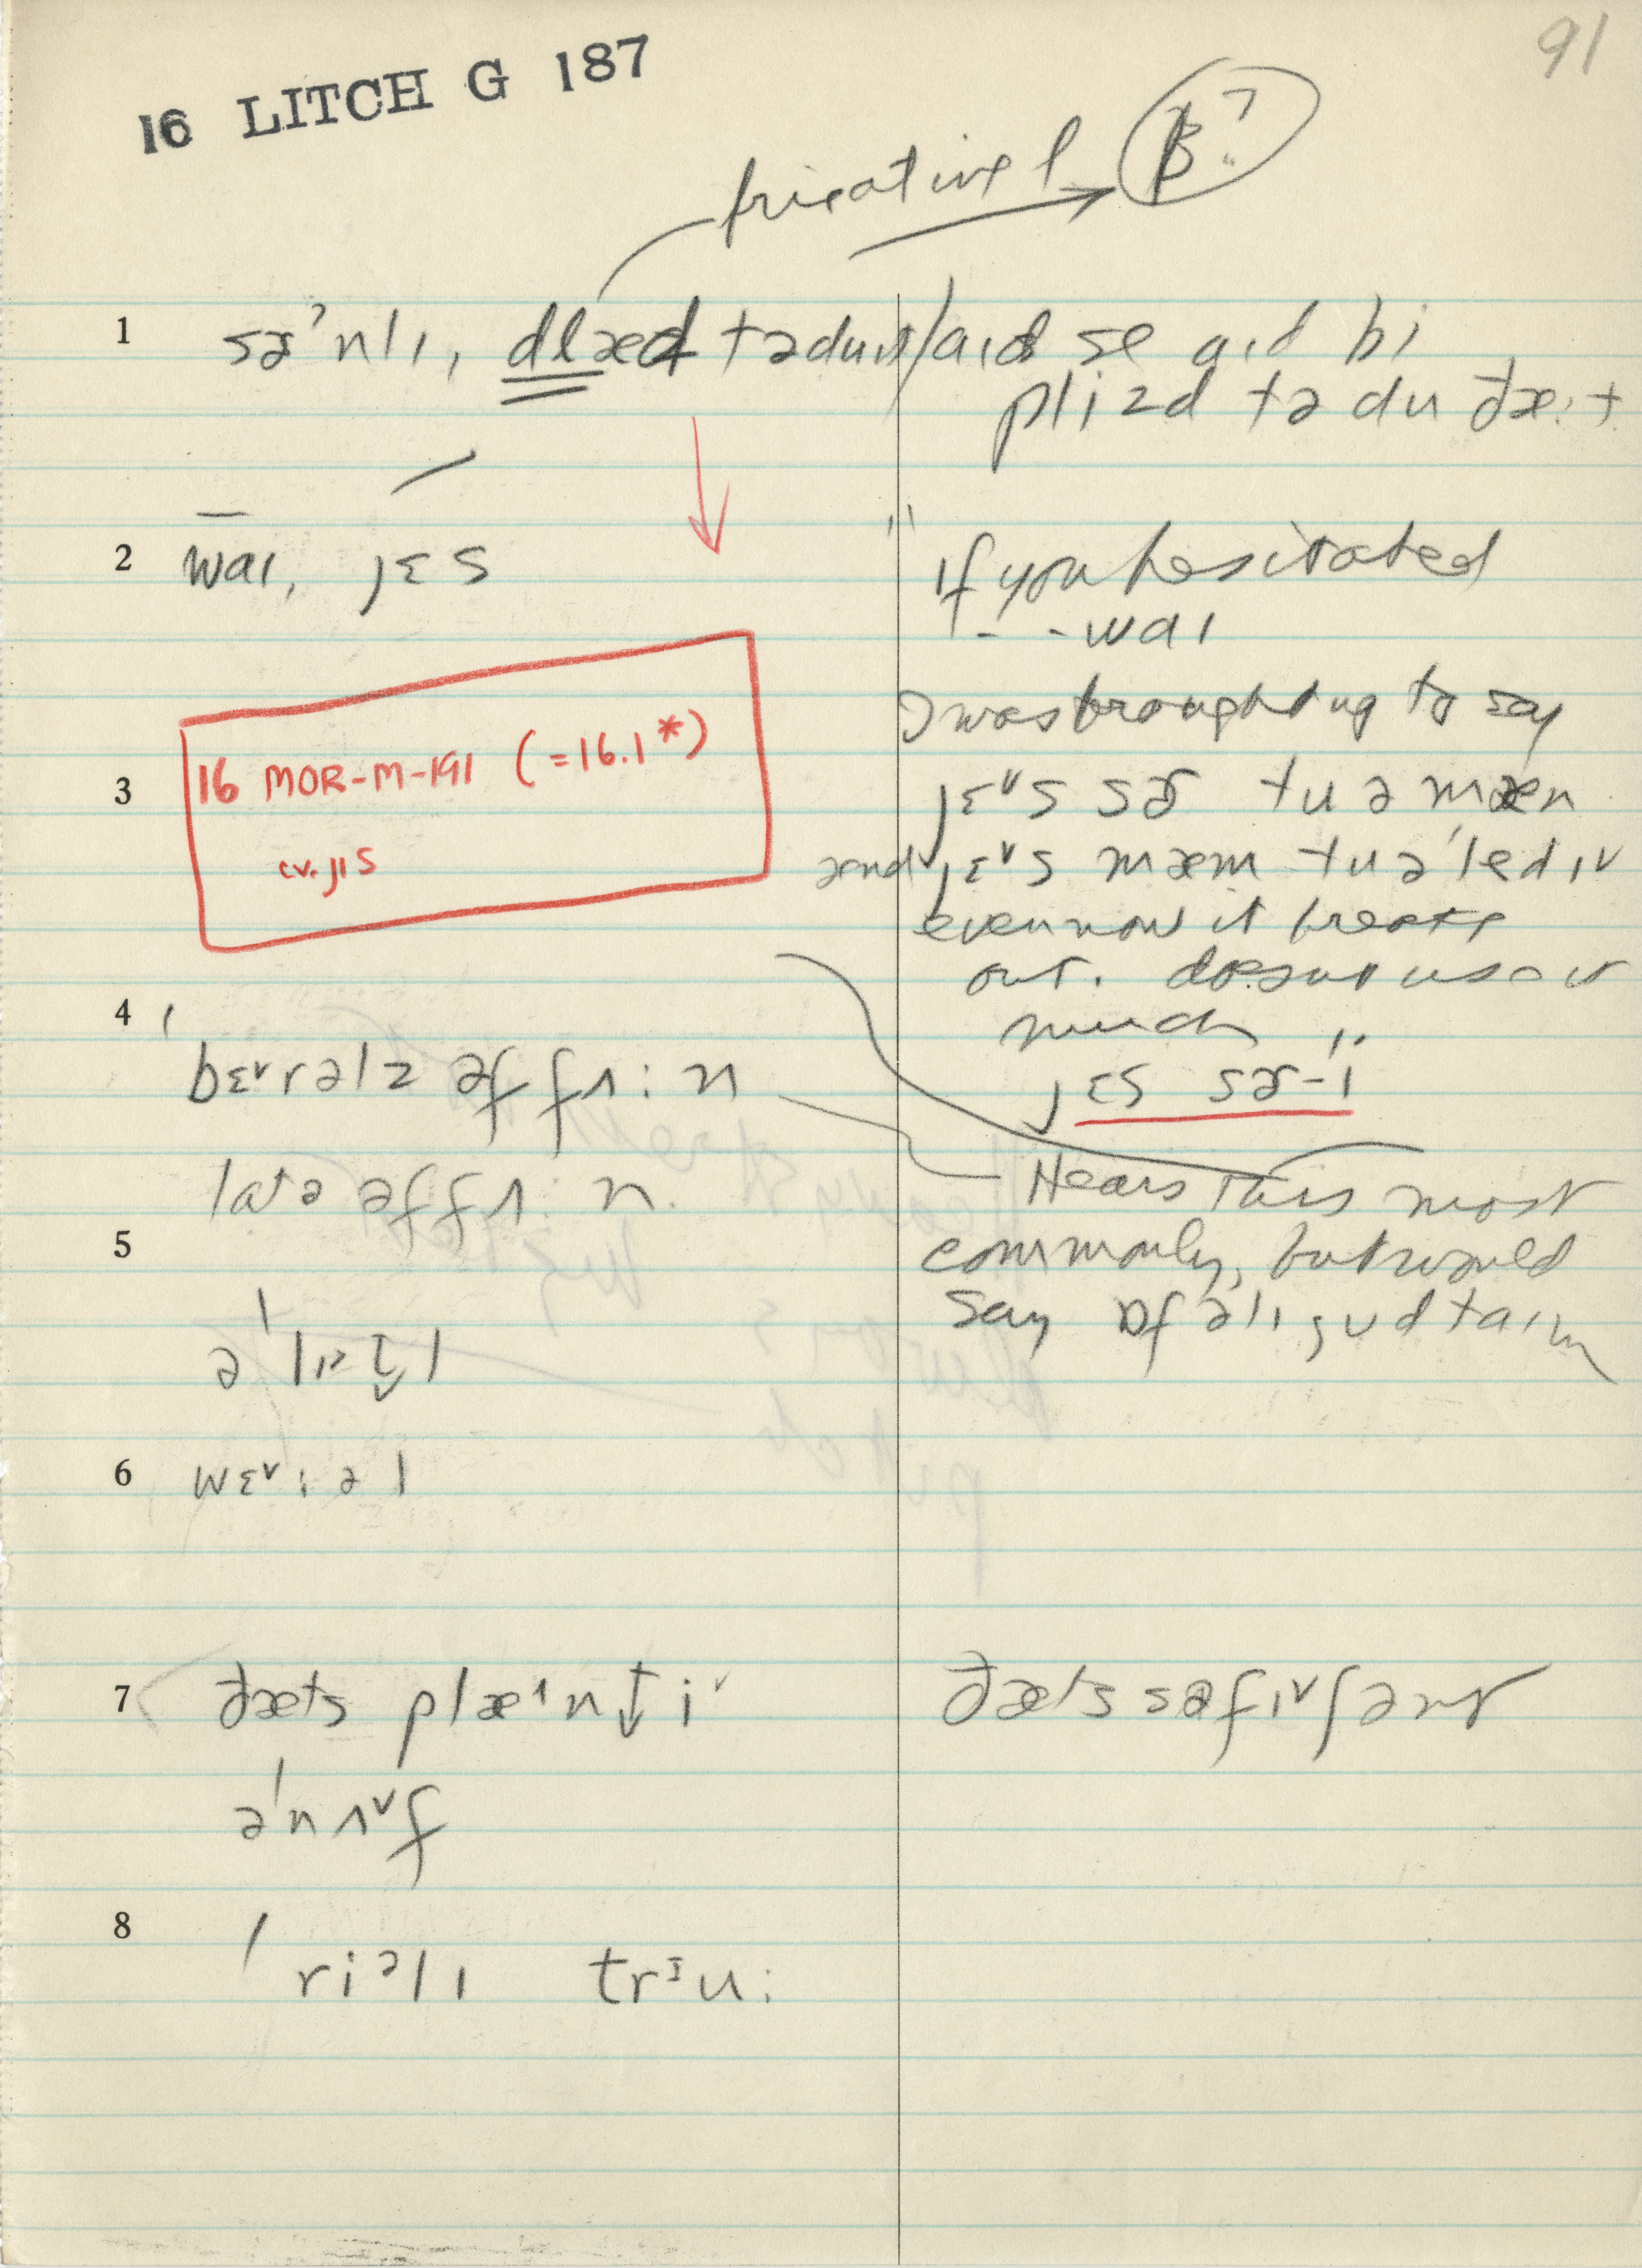 91
16 LITCH G 187
fricative l → ꞵ?
1 sɚˈnlɪ, dlæd tə du ɪt/aɪd se aɪd bi
plizd tə du ðæ:t
2 waɪ, jɛs
"if you hesitated
- - waɪ
I was brought up to say
3 16 MOR-M-191 (=16.1*)
cv. jɪs
jɛ˅s sɚ tu ə mæn
ænd jɛ˅s mæm tu ə ˈledɪ˅
even now it breaks
out. doesn't use it
much
jɛs sɚ-i
4 ˈbɛ˅rəlz əf fʌ:n
lats əf fʌ:n.
Hears this most
commonly, but would
say əf ə lɪ gud taɪm
5 ə ˈlɪt̬l
6 wɛ˅:əl
7 ðæts plæ^nt̬i˅
əˈnʌ˅f
ðæts səfɪ˅ʃənt
8 ˈriəlɪ trᶦu: